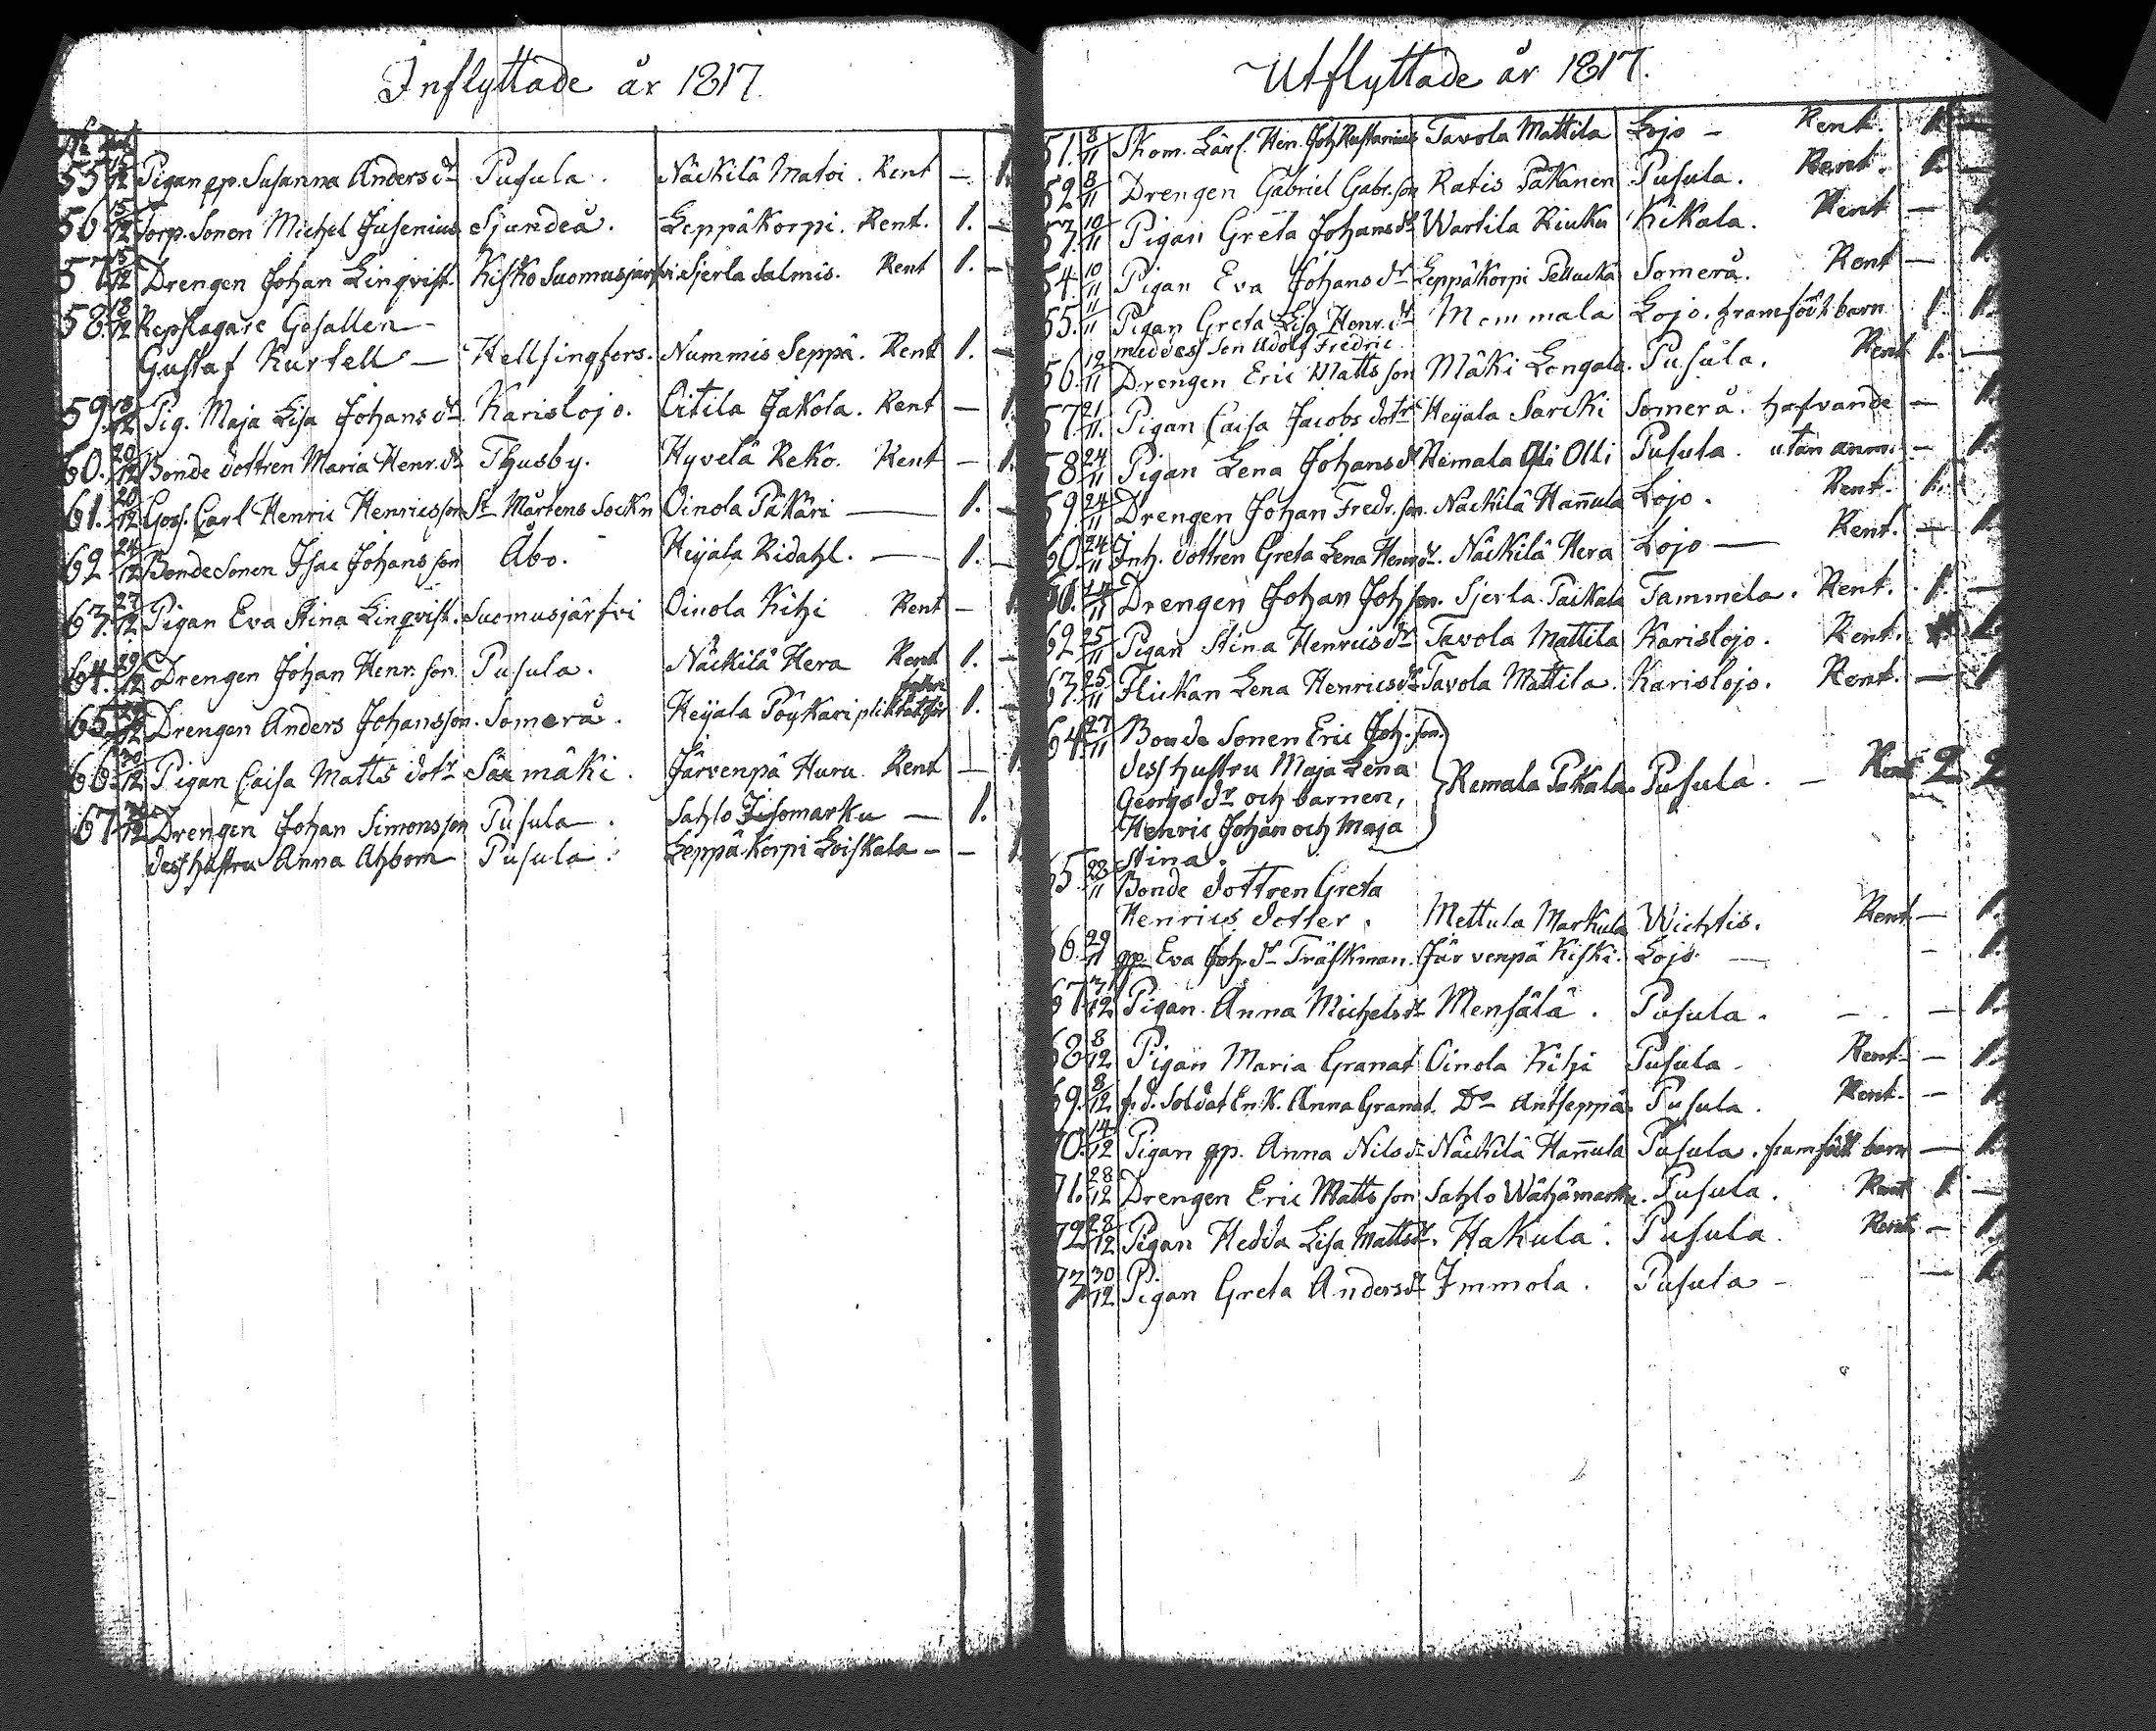 Inflyttade år 1817.
55 15/12 Pigan gp. Susanna Anders dr Pusula. Näckilä Matoi. Rent — 1.
56 15/12 Torp. Sonen Michel Jusenius Sjundeå. Leppäkorpi. Rent. 1. —
57 15/12 Drengen Johan Linqvist. Kisko Suomusjärfvi Sjerla Salmis. Rent 1. —
58. 18/12 Repslagare Gesällen
Gustaf Kurtell — Hellsingfors. Nummis Seppä. Rent 1. —
59. 18/12 Pig. Maja Lisa Johans dr Karislojo. Oitila Jakola. Rent — 1.
60. 20/12 Bonde dottren Maria Henr. dr Thusby. Hyvelä Reko. Rent — 1.
61. 20/12 Goss. Carl Henric Henricsson St Mårtens Sockn Oinola Päkäri — 1. —
62 24/12 Bonde Sonen Isac Johansson Åbo. Heijala Ridahl. — 1. —
63. 27/12 Pigan Eva Stina Linqvist. Suomusjärfvi Oinola Kihi Rent — 1.
64. 29/12 Drengen Johan Henr. son. Pusula. Näckilä Hera Rent 1. —
65. 12 Drengen Anders Johansson. Somerå. Heijala Pöykari pliktat för 1. —
66. 30/12 Pigan Caisa Matts dotr Säxmäki. Järvenpä Huru Rent — 1.
67 12 Drengen Johan Simonsson Pusula. Sahlo Isomarku — 1.
dess hustru Anna Ahbom Pusula. Leppäkorpi Loiskala — — 1.
Utflyttade år 1817.
51. 8/11 Skom. Lärl. Hen. Joh Tavola Mattila Lojo — Rent. 1. —
52 8/11 Drengen Gabriel Gabr. son Ratis Päkänen Pusula. Rent. 1. —
53. 10/11 Pigan Greta Johans dr Wartila Riuku Kikala. Rent — 1.
54. 10/11 Pigan Eva Johans dr Leppäkorpi Pellackä Somerå. Rent — 1.
55. 11/11 Pigan Greta Lisa Henr. dr Memmala Lojo. framfödt barn 1. 1.
med dess Son Adolf Fredric
56. 12/11 Drengen Eric Mattsson Mäki Longala. Pusula. Rent 1. —
57. 21/11. Pigan Caisa Jacobs dotr Heijala Sarcki Somerå. hafvande — 1.
58 24/11 Pigan Lena Johans dr Remala Olli Pusula. utan anm. — 1.
59. 24/11 Drengen Johan Fredr. son. Näckilä Hannula Lojo. Rent. 1.
60. 24/11 Inh. dottren Greta Lena Henr dr. Näckilä Hera Lojo — Rent. — 1.
61. 24/11 Drengen Johan Joh son. Sjerla Päckala Tammela. Rent. 1. —
62 25/11 Pigan Stina Henrics dr Tavola Mattila Karislojo. Rent. 1.
63. 25/11 Flickan Lena Henrics dr Tavola Mattila. Karislojo. Rent. — 1
64. 27/11 Bonde Sonen Eric Joh. son.
dess hustru Maja Lena
Georgs dr och barnen, Remala Pakala. Pusula. — Rent 2 2
Henric Johan och Maja
Stina.
65. 28/11 Bonde dottren Greta
Henrics dotter. Mettula Markula Wichtis. Rent — 1.
66. 29/11 gp. Eva Joh. dr Träskman. Järvenpä Kiski. Lojo. — — 1.
67 7/12 Pigan Anna Michels dr Mensälä. Pusula. — — 1.
68 8/12 Pigan Maria Granat Oinola Kihi Pusula. Rent. — 1.
69. 8/12 f. d. Soldat Enk. Anna Granat. Do Antseppä. Pusula. Rent. — 1.
70. 14/12 Pigan gp. Anna Nils dr Näckilä Hannula Pusula. framfödt barn — 1.
71. 28/12 Drengen Eric Mattsson Sahlo Wähämarku. Pusula. Rent 1 —
72 28/12 Pigan Hedda Lisa Matts dr. Hakula. Pusula. Rent — 1.
73 30/12 Pigan Greta Anders dr Immola. Pusula — — 1.